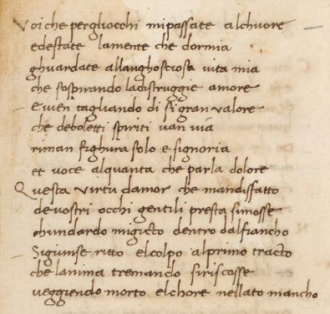 Voi che pergliocchi mipassate alchuore
edestate lamente che dormia
ghuardate allanghosciosa vita mia
che sospirando ladistruggie amore
Evien tagliando di sigran valore
che deboletti spiriti van via
riman fighura solo e signoria
et voce alquanta che parla dolore
Questa virtu damor che mandisfatto
devostri occhi gentili presta simosse
chundardo migitto dentro dalfiancho
Sigiunse ritto elcolpo alprimo tracto
che lanima tremando siriscosse
veggiendo morto elchore nellato mancho